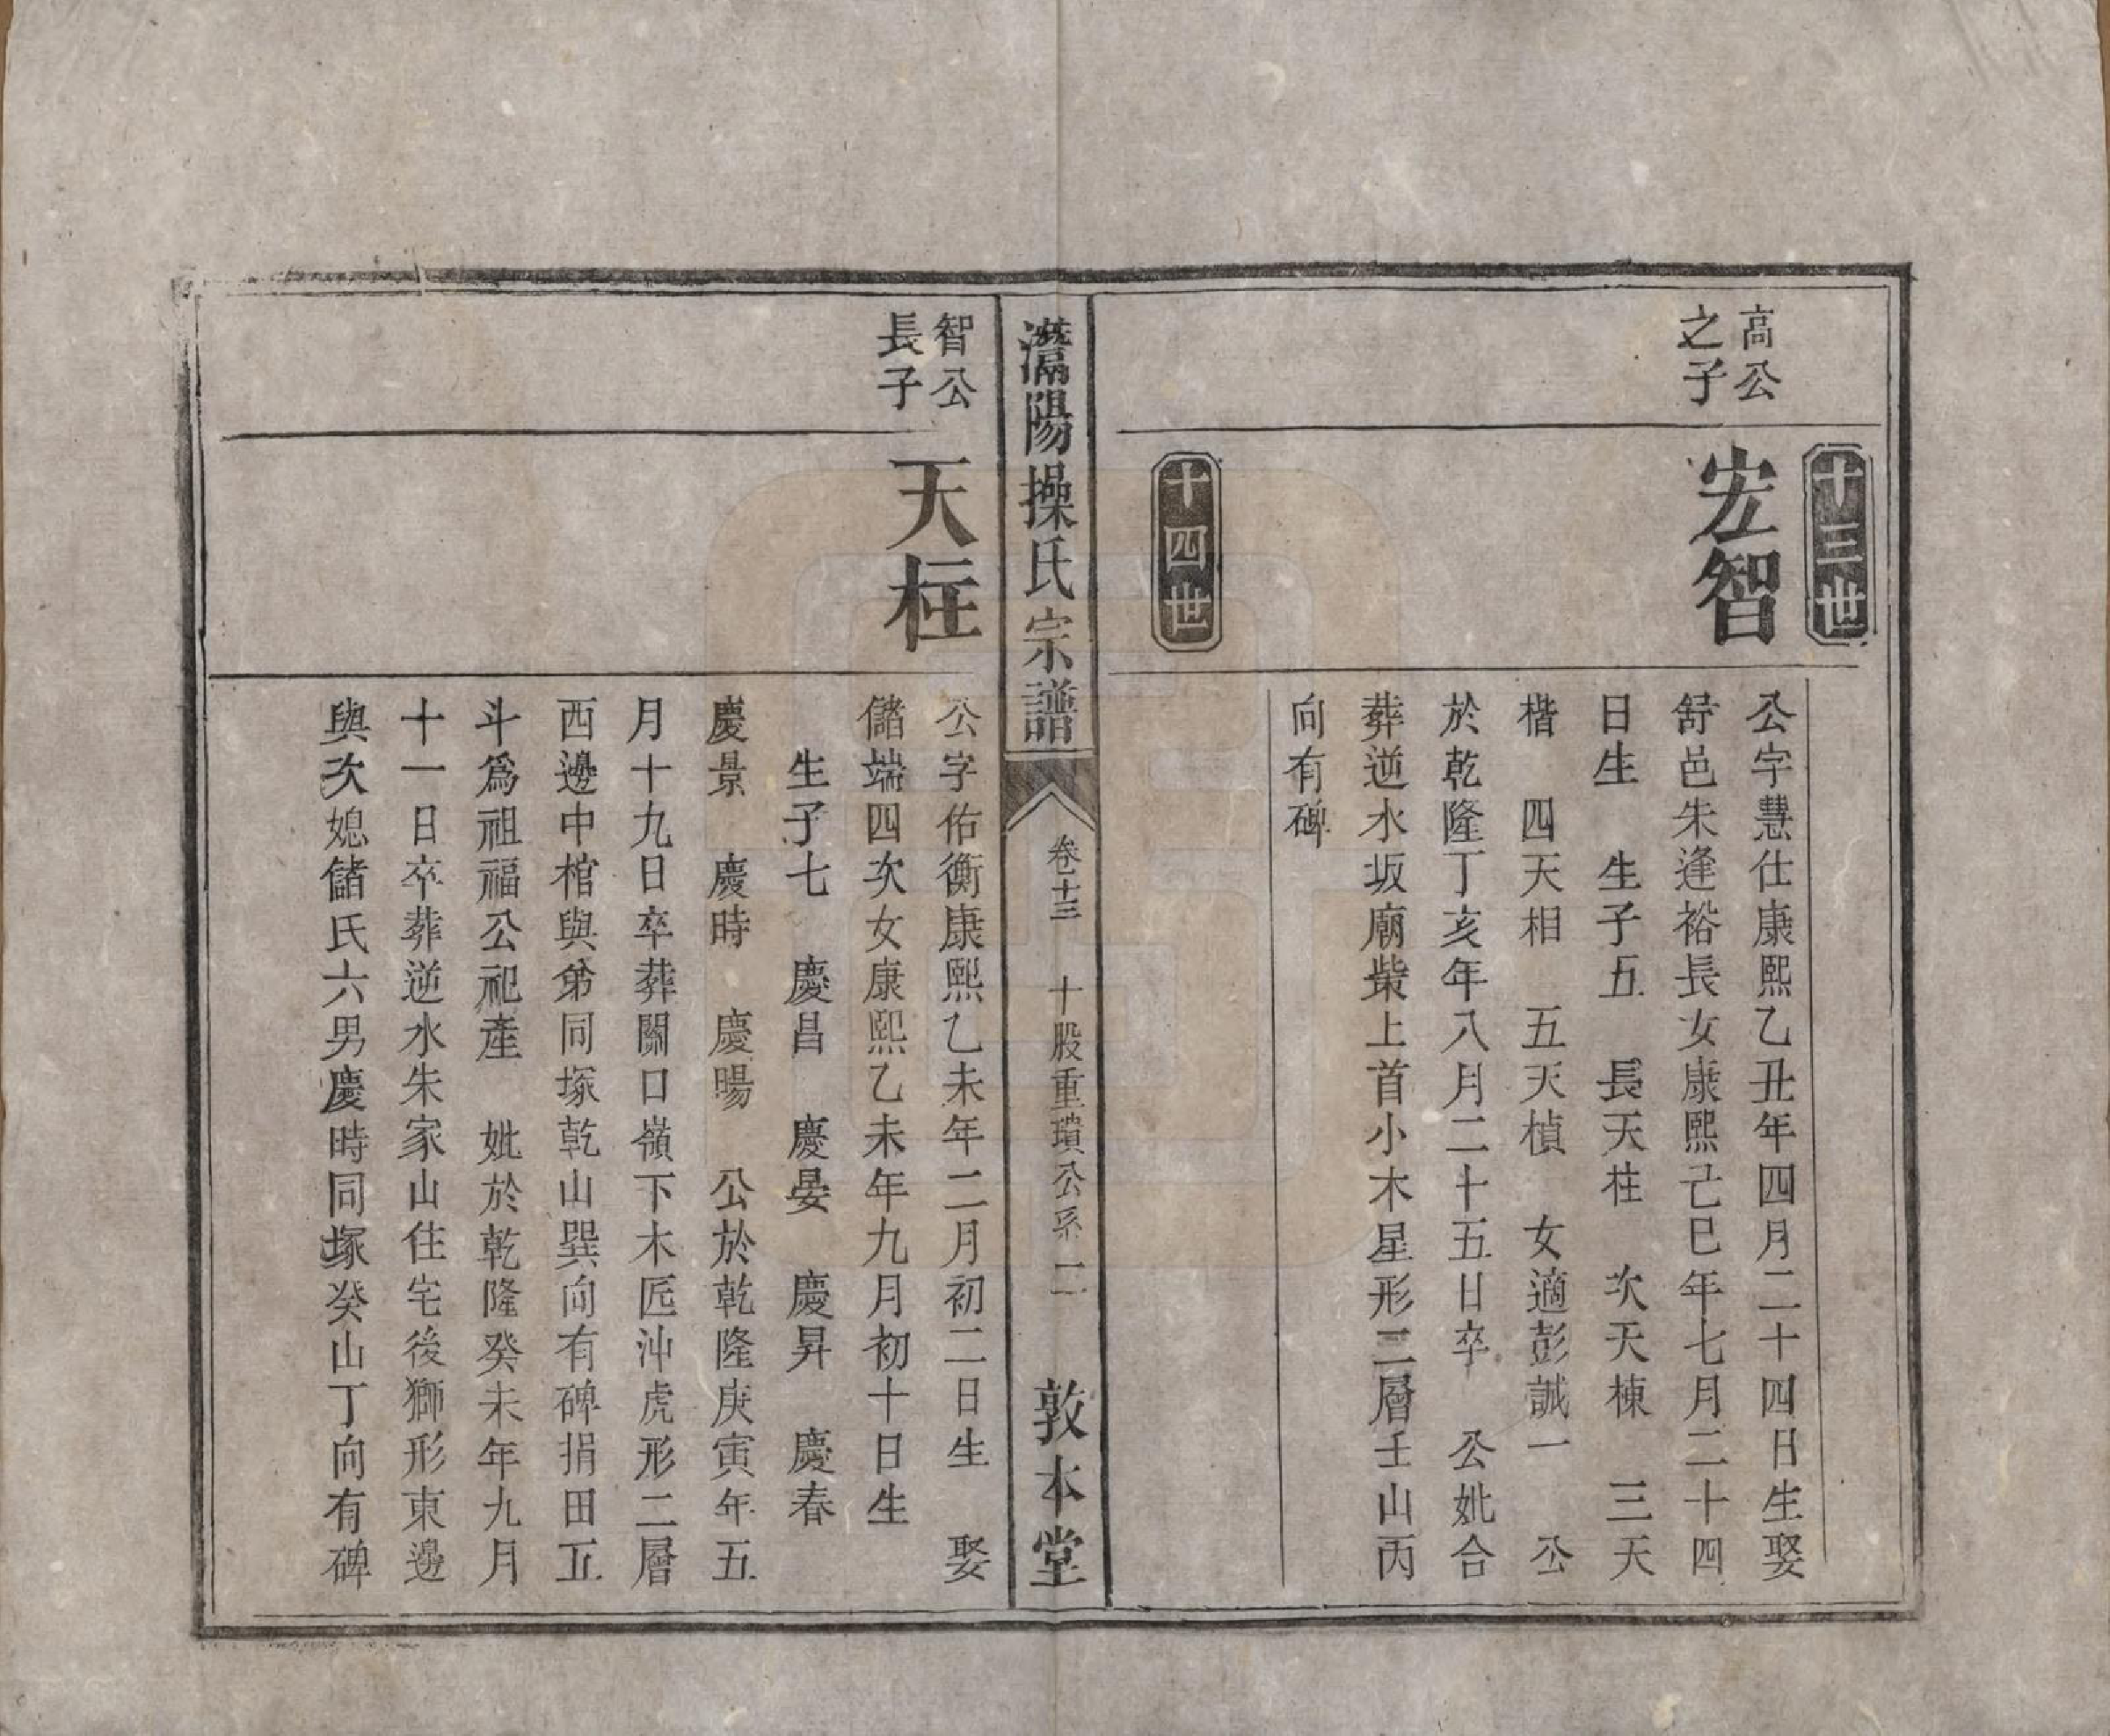 十三世
高公
之子
宏智
公字慧仕康熙乙丑年四月二十四日生娶
舒邑朱逢裕長女康熙己巳年七月二十四
日生 生子五 長天柱 次天棟 三天
楷 四天相 五天楨 女適彭誠一 公
於乾隆丁亥年八月二十五日卒 公妣合
葬逆水坂廟柴上首小木星形三層壬山丙
向有碑
十四世
灊陽操氏宗譜
卷十三 十股重璝公系 二
敦本堂
智公
長子
天柱
公字佑衡康熙乙未年二月初二日生 娶
儲端四次女康熙乙未年九月初十日生
生子七 慶昌 慶晏 慶昇 慶春
慶景 慶時 慶暘 公於乾隆庚寅年五
月十九日卒葬關口嶺下木匠沖虎形二層
西邊中棺與弟同塚乾山巽向有碑捐田五
斗爲祖福公祀產 妣於乾隆癸未年九月
十一日卒葬逆水朱家山住宅後獅形東邊
與次媳儲氏六男慶時同塚癸山丁向有碑